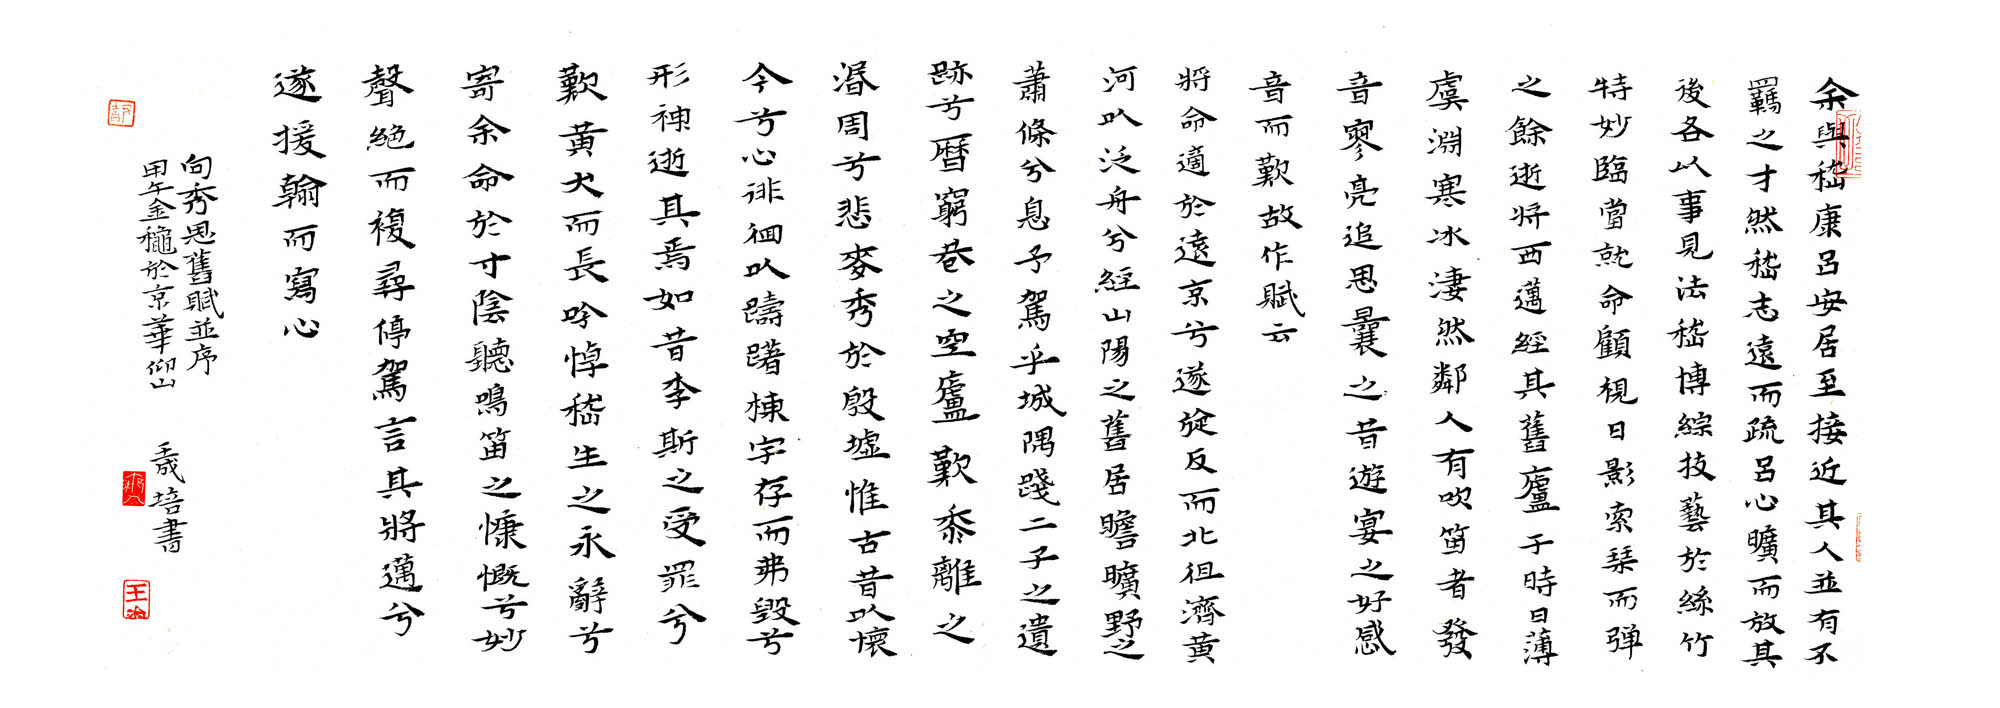 余與嵇康呂安居至接近其人並有不
羈之才然嵇志遠而疏呂心曠而放其
後各以事見法嵇博綜技藝於絲竹
特妙臨當就命顧視日影索琴而彈
之餘逝將西邁經其舊廬于時日薄
虞淵寒冰淒然鄰人有吹笛者發
音寥亮追思曩之昔遊宴之好感
音而歎故作賦云
將命適於遠京兮遂旋反而北徂濟黃
河以泛舟兮經山陽之舊居瞻曠野之
蕭條兮息予駕乎城隅踐二子之遺
跡兮曆窮巷之空廬歎黍離之
湣周兮悲麥秀於殷墟惟古昔以懷
今兮心徘徊以躊躇棟宇存而弗毀兮
形神逝其焉如昔李斯之受罪兮
歎黃犬而長吟悼嵇生之永辭兮
寄余命於寸陰聽鳴笛之慷慨兮妙
聲絕而複尋停駕言其將邁兮
遂援翰而寫心
向秀思舊賦並序
甲午金穐於京華仰山
成培書